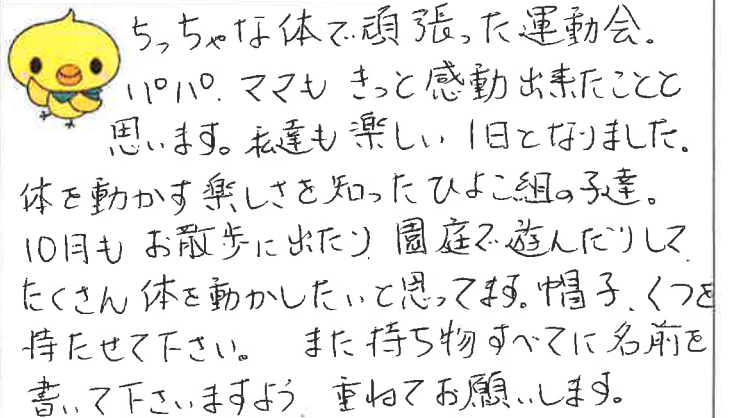 ちっちゃな体で頑張った運動会。
パパ、ママも きっと感動出来たことと
思います。私達も楽しい1日となりました。
体を動かす楽しさを知ったひよこ組の子達。
10月も お散歩に出たり、園庭で遊んだりして、
たくさん体を動かしたいと思ってます。帽子、くつを
持たせて下さい。 また持ち物すべてに名前を
書いて下さいますよう、重ねてお願いします。